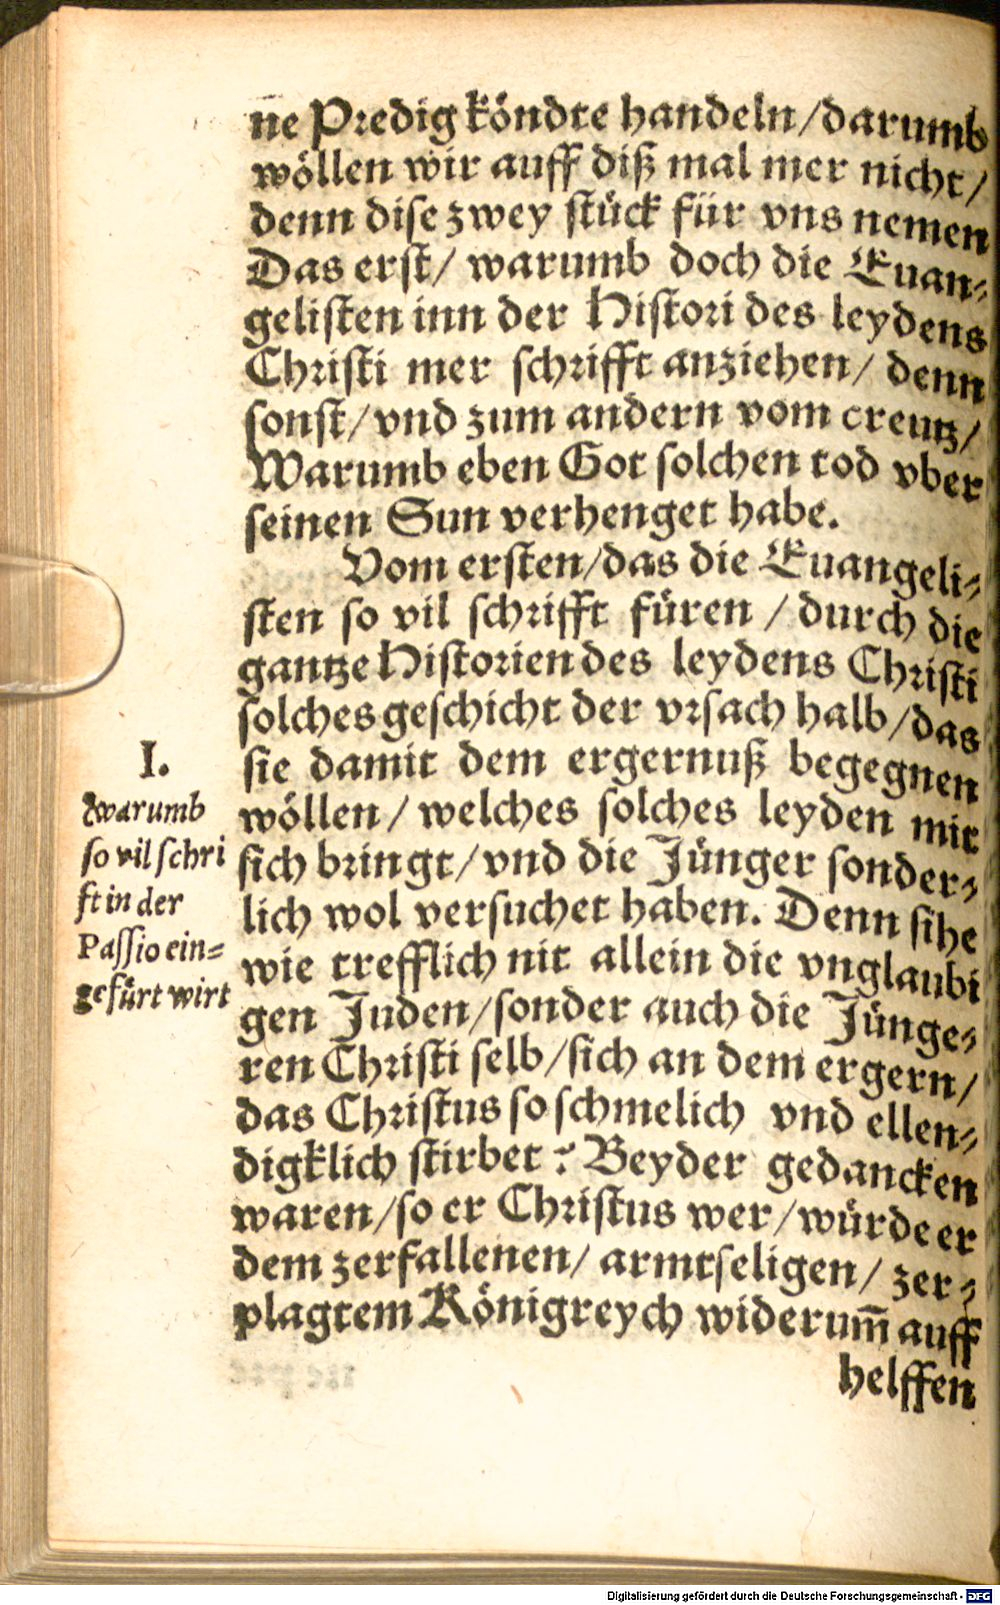 ne Predig köndte handeln/darumb
wöllen wir auff diß mal mer nicht/
denn dise zwey stück für vns nemen
Das erst/ warumb doch die Euan⸗
gelisten inn der Histori des leydens
Christi mer schrifft anziehen/ denn
sonst/vnd zum andern vom creutz/
Warumb eben Got solchen tod vber
seinen Sun verhenget habe.
Vom ersten/das die Euangeli⸗
sten so vil schrifft füren / durch die
gantze Historien des leydens Christi
solches geschicht der vrsach halb/das
sie damit dem ergernuß begegnen
wöllen/ welches solches leyden mit
sich bringt/vnd die Jünger sonder⸗
lich wol versuchet haben. Denn sihe
wie trefflich nit allein die vnglaubi
gen Juden/sonder auch die Jünge⸗
ren Christi selb/sich an dem ergern/
das Christus so schmelich vnd ellen⸗
digklich stirbet ? Beyder gedancken
waren/so er Christus wer/würde er
dem zerfallenen/ armtseligen/ zer⸗
plagtem Königreych widerum̄ auff
helffen
I.
Warumb
so vil schri
ft in der
Passio ein⸗
gefürt wirt
Digitalisierung gefördert durch die Deutsche Forschungsgemeinschaft - DFG